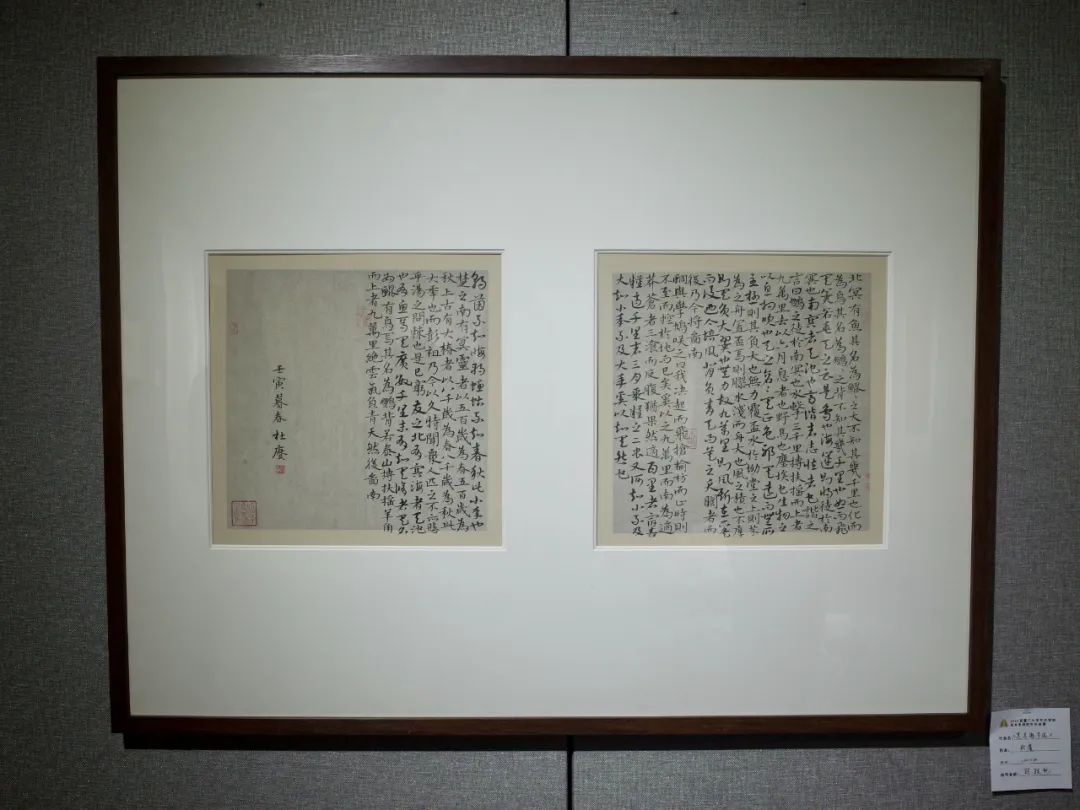 北冥有魚其名為鯤〻之大不知其幾千里也化而
為鳥其名為鵬〻之背不知其幾千里也怒而飛
其翼若垂天之雲是鳥也海運則將徙於南
冥也南冥者天池也齊諧者志怪者也諧之
言曰鵬之徙於南冥也水擊三千里摶扶搖而上者
九萬里去以六月息者也野馬也塵埃也生物之
以息相吹也天之蒼〻其正色邪其遠而無所
至極則其負大也無力覆盃水於坳堂之上則芥
為之舟置焉則膠水淺而舟大也風之積也不厚
則其負大翼也無力故九萬里則風斯在下矣
而後乃今培風背負青天而莫之夭閼者而
後乃今將圖南
蜩與學鳩笑之曰我決起而飛搶榆枋而止時則
不至而控於地而已矣奚以之九萬里而南為適
莽蒼者三飡而反腹猶果然適百里者宿舂
糧適千里者三月聚糧之二蟲又何知小知不及
大知小年不及大年奚以知其然也
朝菌不知晦朔蟪蛄不知春秋此小年也
楚之南有冥靈者以五百歲為春五百歲為
秋上古有大椿者以八千歲為春八千歲為秋此
大年也而彭祖乃今以久特聞眾人匹之不亦悲
乎湯之問棘也是已窮髮之北有冥海者天池
也有魚焉其廣數千里未有知其脩者其名
為鯤有鳥焉其名為鵬背若泰山摶扶搖羊角
而上者九萬里絕雲氣負青天然後圖南
壬寅暮春 杜慶